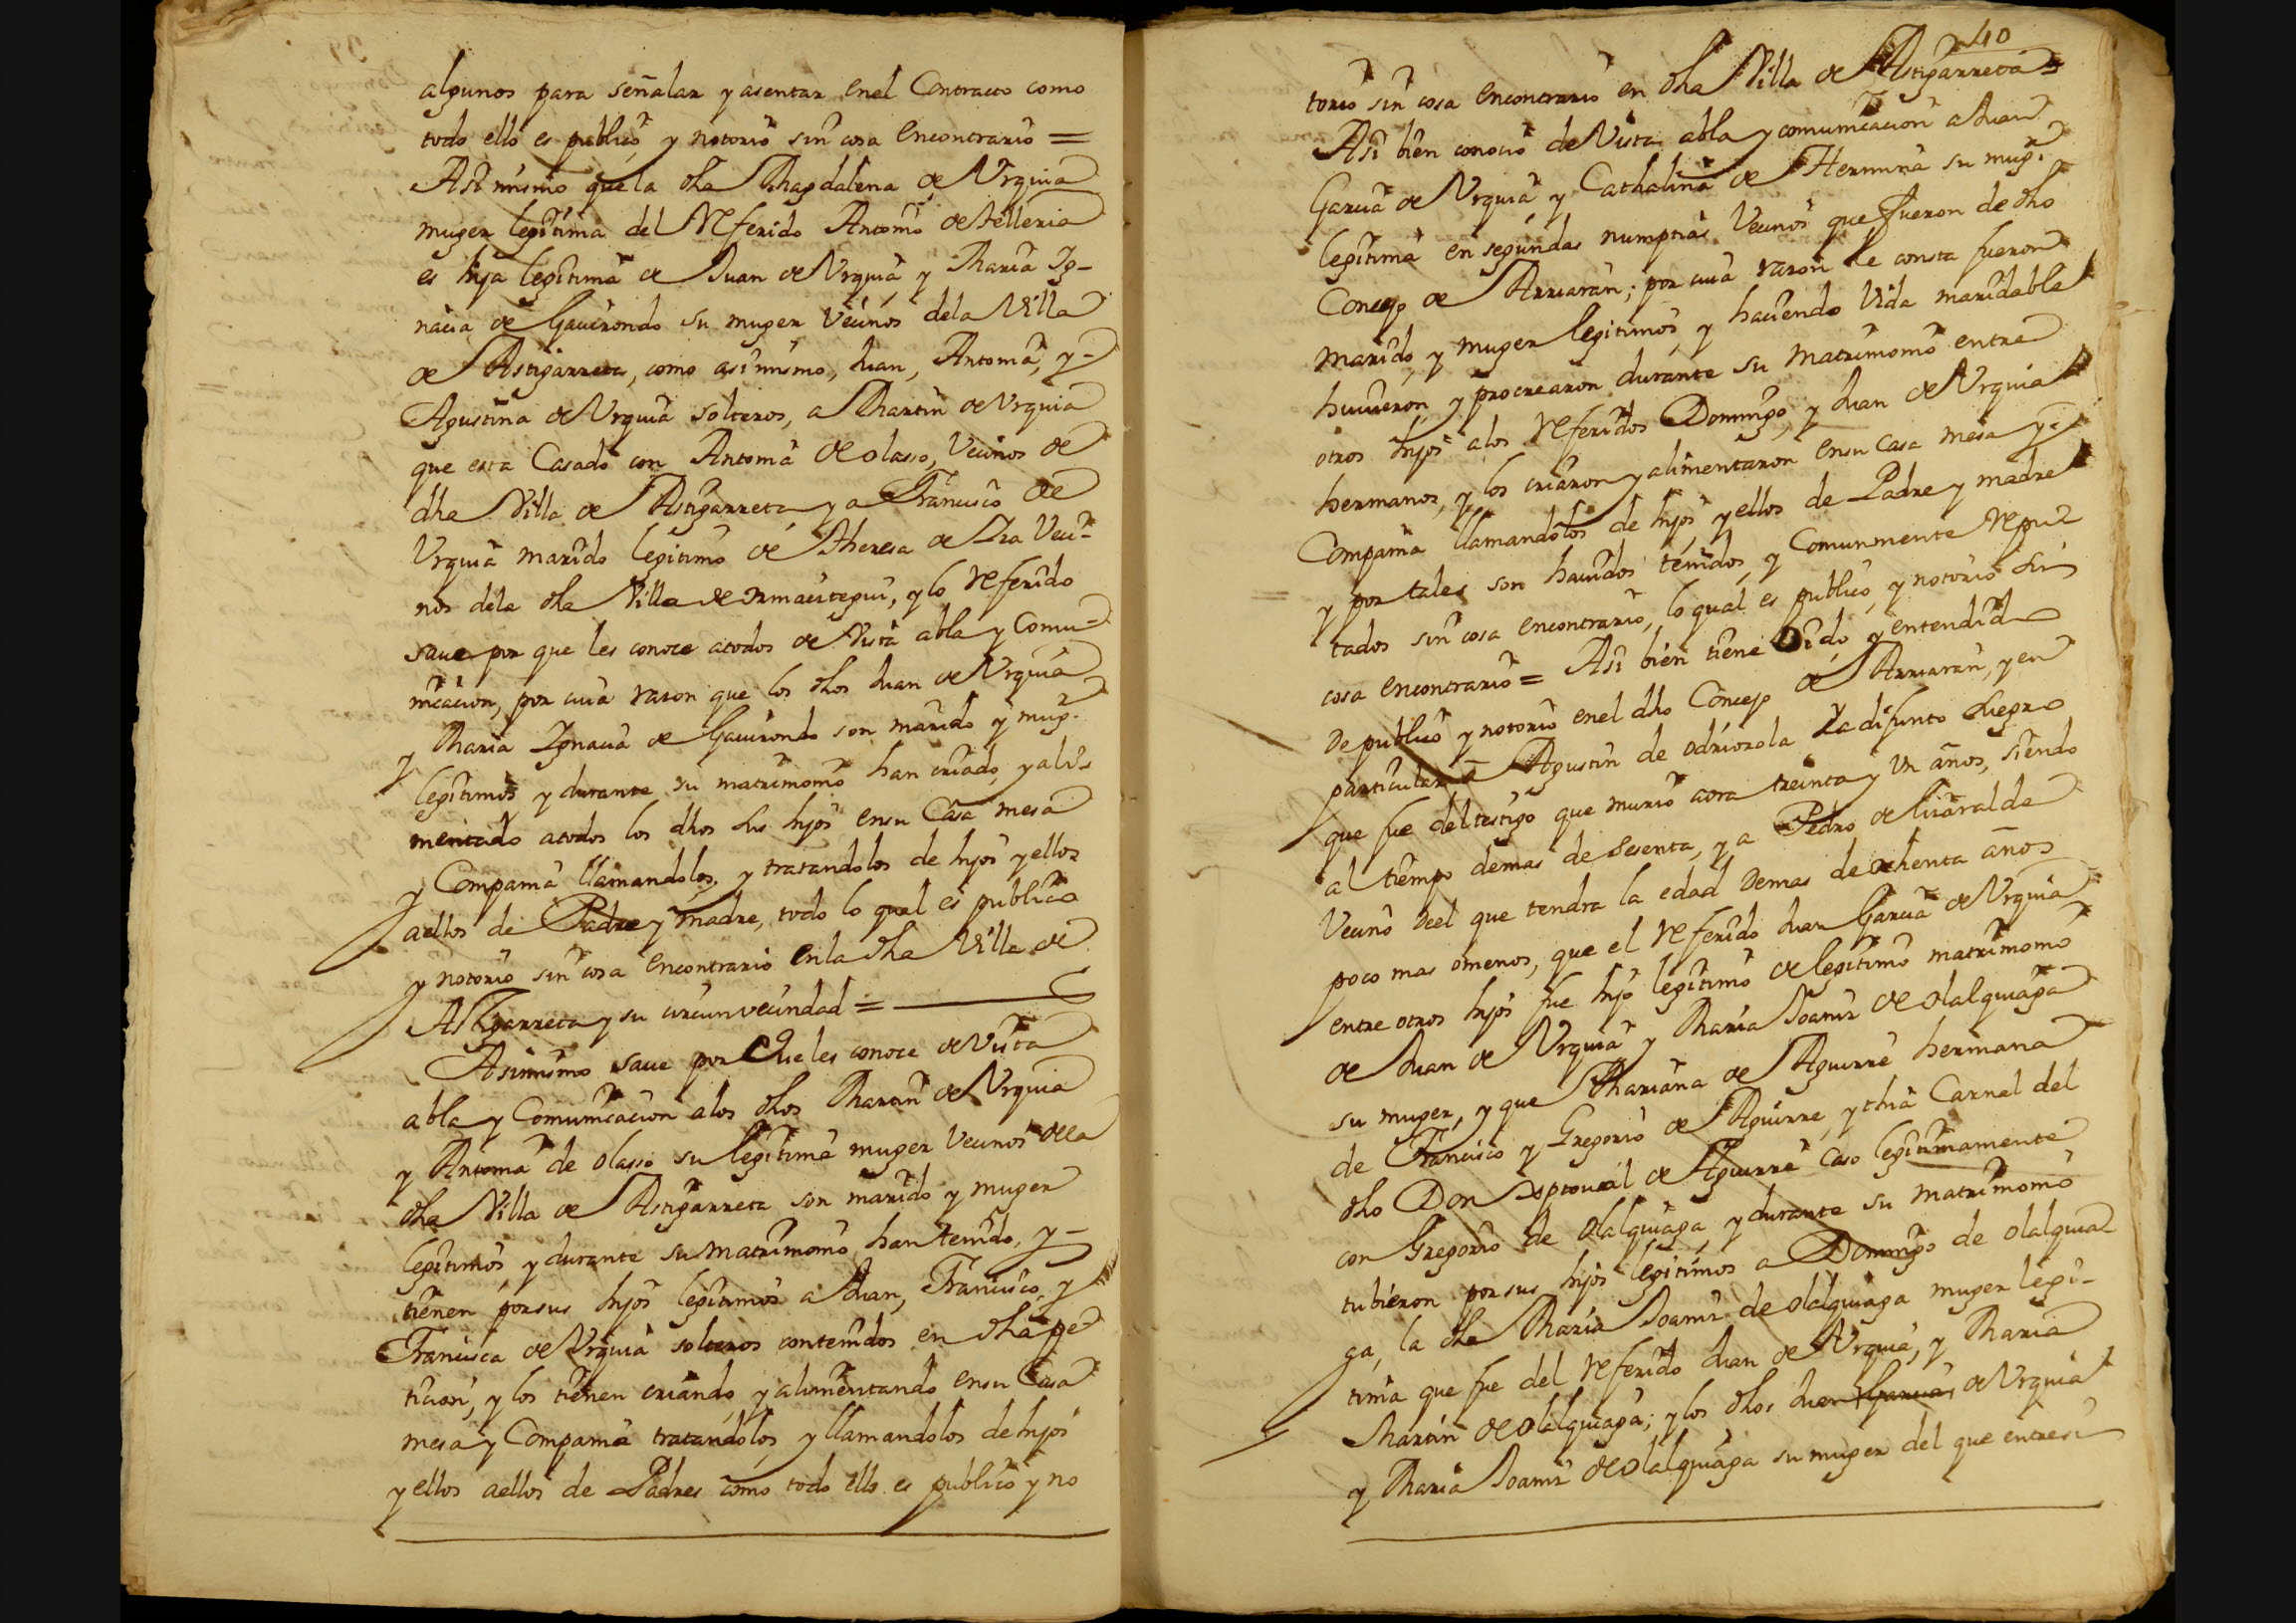 algunos para señalar y asentar enel Contracto como
todo ello es publico, y notorio sin cosa Encontrario =
Asi mismo que la dha Magdalena de Vrquia
muger legitima del Referido Antonio de telleria
es hija legitima de Juan de Vrquia y Maria Ig-
nacia de Gauirondo su muger Vecinos dela Villa
de Astigarreta, como asi mismo, Juan, Antonia, y-
Agustina de Vrquia solteros, a Martin de Vrquia
que esta Casado con Antonia de olasso, Vecinos de
dha Villa de Astigarreta y a Francisco de
Vrquia marido legitimo de Theresa de Veci-
nos dela dha Villa de Ormaiztegui, y lo referido
saue por que les conoce atodos de Vista abla y Comu-
nicacion, por cuia razon que los dhos Juan de Vrquia
y Maria Ignacia de Gauirondo son marido y mugr.
legitimos y durante su matrimonio han criado, y ali-
mentado atodos los dhos sus hijos ensu Casa mesa
y Compania llamandolos, y tratandolos de hijos y ellos
aellos de Padre y madre, todo lo qual es publico
y notorio sin cosa Encontrario enla dha Villa de
Astigarreta y su circunvecindad =
Asimismo saue por Que les conoce de Vista
abla y Comunicacion alos dhos Martin de Vrquia
y Antonia de olasso su legitima muger Vecinos dela
dha Villa de Astigarreta son marido y muger
legitimos, y durante su matrimonio, han tenido, y-
tienen por sus hijos legitimos a Juan, Francisco, y
Francisca de Vrquia solteros contenidos en dha pe-
ticion, y los tienen criando, y alimentando ensu Casa
mesa y Compania tratandolos, y llamandolos de hijos
y ellos aellos de Padres como todo ello es publico y no
40
torio sin cosa encontrario en dha Villa de Astigarreta =
Asi bien conocio de Vista abla y comunicacion a Juan
Garcia de Vrquia y Cathalina de su mugr.
legitima en segundas numptias Vecinos que fueron de dho
Concejo de Arriaran; por cuia razon le consta fueron
marido, y muger legitimos, y haciendo Vida maridable
huuieron, y procrearon durante su matrimonio entre
otros hijos alos referidos Domingo, y Juan de Vrquia
hermanos, y los criaron y alimentaron ensu Casa mesa y-
Compania llamandolos de hijos y ellos de Padre y madre
y por tales son hauidos tenidos, y Comunmente repu-
tados sin cosa encontrario, lo qual es publico, y notorio sin
cosa encontrario = Asi bien tiene Oido, y entendido
De publico y notorio enel dho Concejo de Arriaran, y en
particular a Agustin de odriozola Ya difunto suegro
que fue del testigo que murio aora treinta y Un años, siendo
al tiempo demas de sesenta, y a Pedro de liçaralde
Vecino deel que tendra la edad Demas de ochenta años
poco mas omenos, que el Referido Juan Garcia de Vrquia
entre otros hijos fue hijo legitimo de legitimo matrimonio
de Juan de Vrquia y Maria Joaniz de olalquiaga
su muger, y que Mariana de Aguirre hermana
de Francisco y Gregorio de Aguirre, y thia Carnal del
dho Don de Aguirre Caso legitimamente
con Gregorio de olalquiaga, y durante su matrimonio
tubieron por sus hijos legitimos a Domingo de olalquia-
ga, la dha Maria Joaniz de olalquiaga muger legi-
tima que fue del Referido Juan de Vrquia, y Maria
Martin de olalquiaga; y los dhos Juan Garcia de Vrquia
y Maria Joaniz de olalquiaga su muger del que entresi